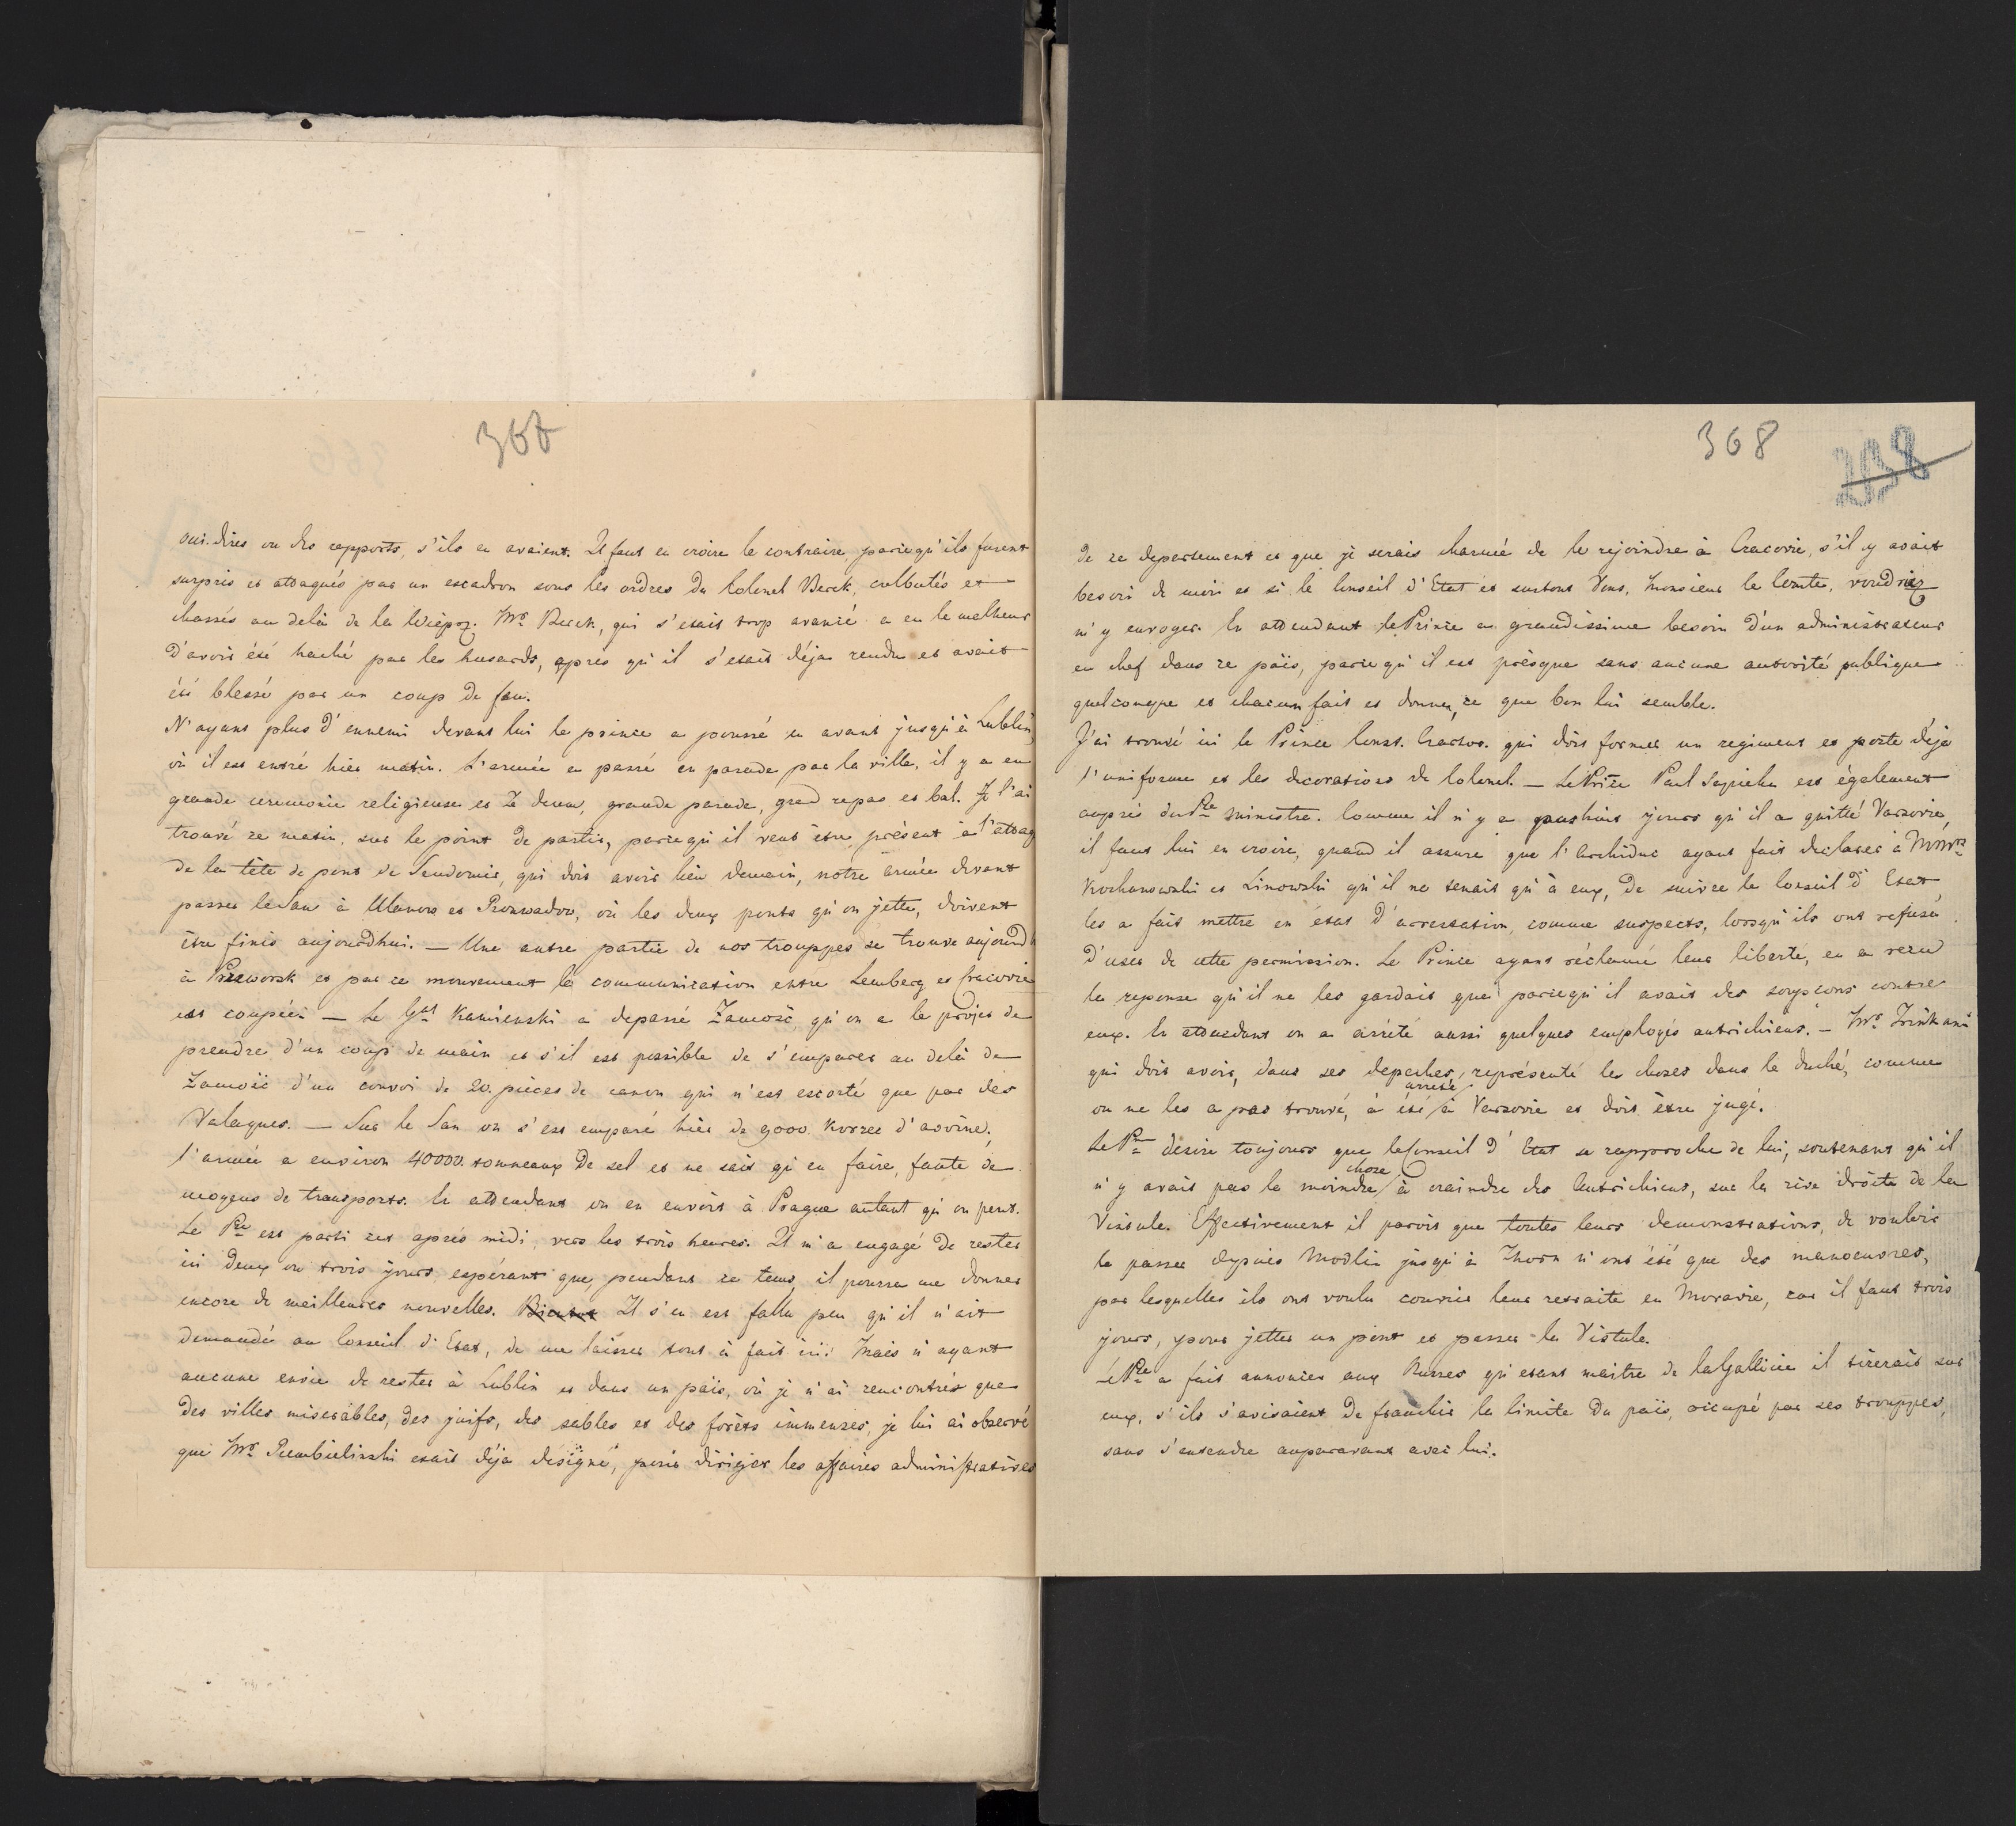 367
oui-dires ou des rapports, s'ils en avaient. Il faut en croire le contraire parcequ'ils furent
surpris et attaqués par un escadron sous les ordres du Colonel Berek, culbutés et
chassés au delà de la Wieprz. Mr Berek, qui s'etait trop avancé a eu le malheur
d'avoir été haché par les husards, apres qu'il s'etait déja rendu et avait
été blessé par un coup de feu.
N'ayant plus d'ennemi devant lui le prince a poussé en avant jusqu'à Lublin,
où il est entré hier matin. L'armée a passé en parade par la ville, il y a eu
grande ceremonie religieuse et Te deum, grande parade, grand repas et bal. Je l'ai
trouvé ce matin, sur le point de partir, parcequ'il veut être présent à l'attaq
de la tête de pont de Sendomir, qui doit avoir lieu demain, notre armée devant
passer le San à Ulanow et Rozwadow, où les deux ponts qu'on jette, doivent
être finis aujourdhui. — Une autre partie de nos trouppes se trouve aujourdh
à Przeworsk et par ce mouvement la communication entre Lemberg et Cracovie
est coupée. — Le Gal Kamienski a depassé Zamość, qu'on a le projet de
prendre d'un coup de main et s'il est possible de s'emparer au delà de
Zamość d'un convoi de 20. pièces de canon qui n'est escorté que par des
Valaques. — Sur le San on s'est emparé hier de 9000. Korzec d'avoine,
l'armée a environ 40000. tonneaux de sel et ne sait qu'en faire, faute de
moyens de transports. En attendant on en envoit à Prague autant qu'on peut.
Le Pce est parti cet après midi, vers les trois heures. Il m'a engagé de rester
ici deux ou trois jours, espérant que, pendant ce tems, il pourra me donner
encore de meilleures nouvelles. Il s'en est fallu peu qu'il n'ait
demandé au Conseil d'Etat, de me laisser tout à fait ici! Mais n'ayant
aucune envie de rester à Lublin et dans un païs, où je n'ai rencontrés que
des villes miserables, des juifs, des sables et des forêts immenses, je lui ai observé
que Mr Rembielinski etait déja désigné, pour diriger les affaires administratives
368
238
de ce departement et que je serais charmé de le rejoindre à Cracovie, s'il y avait
besoin de moi et si le Conseil d'Etat et surtout Vous, Monsieur le Comte, voudriez
m'y envoyer. En attendant le Prince a grandissime besoin d'un administrateur
en chef dans ce païs, parcequ'il est présque sans aucune autorité publique
quelconque et chacun fait et donne, ce que bon lui semble.
J'ai trouvé ici le Prince Const. Czartor. qui doit former un regiment et porte déja
l'uniforme et les decorations de Colonel. — Le Prince Paul Sapieha est également
auprès du Pce ministre. Comme il n'y a que huit jours qu'il a quitté Varsovie,
il faut lui en croire, quand il assure que l'Archiduc ayant fait declarer à Mmrs
Kochanowski et Linowski qu'il ne tenait qu'à eux, de suivre le Conseil d'Etat,
les a fait mettre en état d'arrestation, comme suspects, lorsqu'ils ont refusé
d'user de cette permission. Le Prince ayant réclamé leur liberté, en a recu
la reponse qu'il ne les gardait que parcequ'il avait des soupçons contre
eux. En attendant on a arrêté aussi quelques employés autrichiens. — Mr
qui doit avoir, dans ses depeches, représenté les choses dans le duché, comme
on ne les a pas trouvé, à été arreté à Varsovie et doit être jugé.
Le Pce desire toujours que le Conseil d'Etat se rapproche de lui, soutenant qu'il
n'y avait pas la moindre chose à craindre des Autrichiens, sur la rive droite de la
Vistule. Effectivement il paroit que toutes leurs demonstrations, de vouloir
la passer depuis Modlin jusqu'à Thorn n'ont été que des manoeuvres,
par lesquelles ils ont voulu couvrir leur retraite en Moravie, car il faut trois
jours, pour jetter un pont et passer la Vistule.
Le Pce a fait annoncer aux Russes qu'etant maitre de la Gallicie il tirerait sur
eux, s'ils s'avisaient de franchir la limite du païs, occupé par ses trouppes,
sans s'entendre auparavant avec lui.